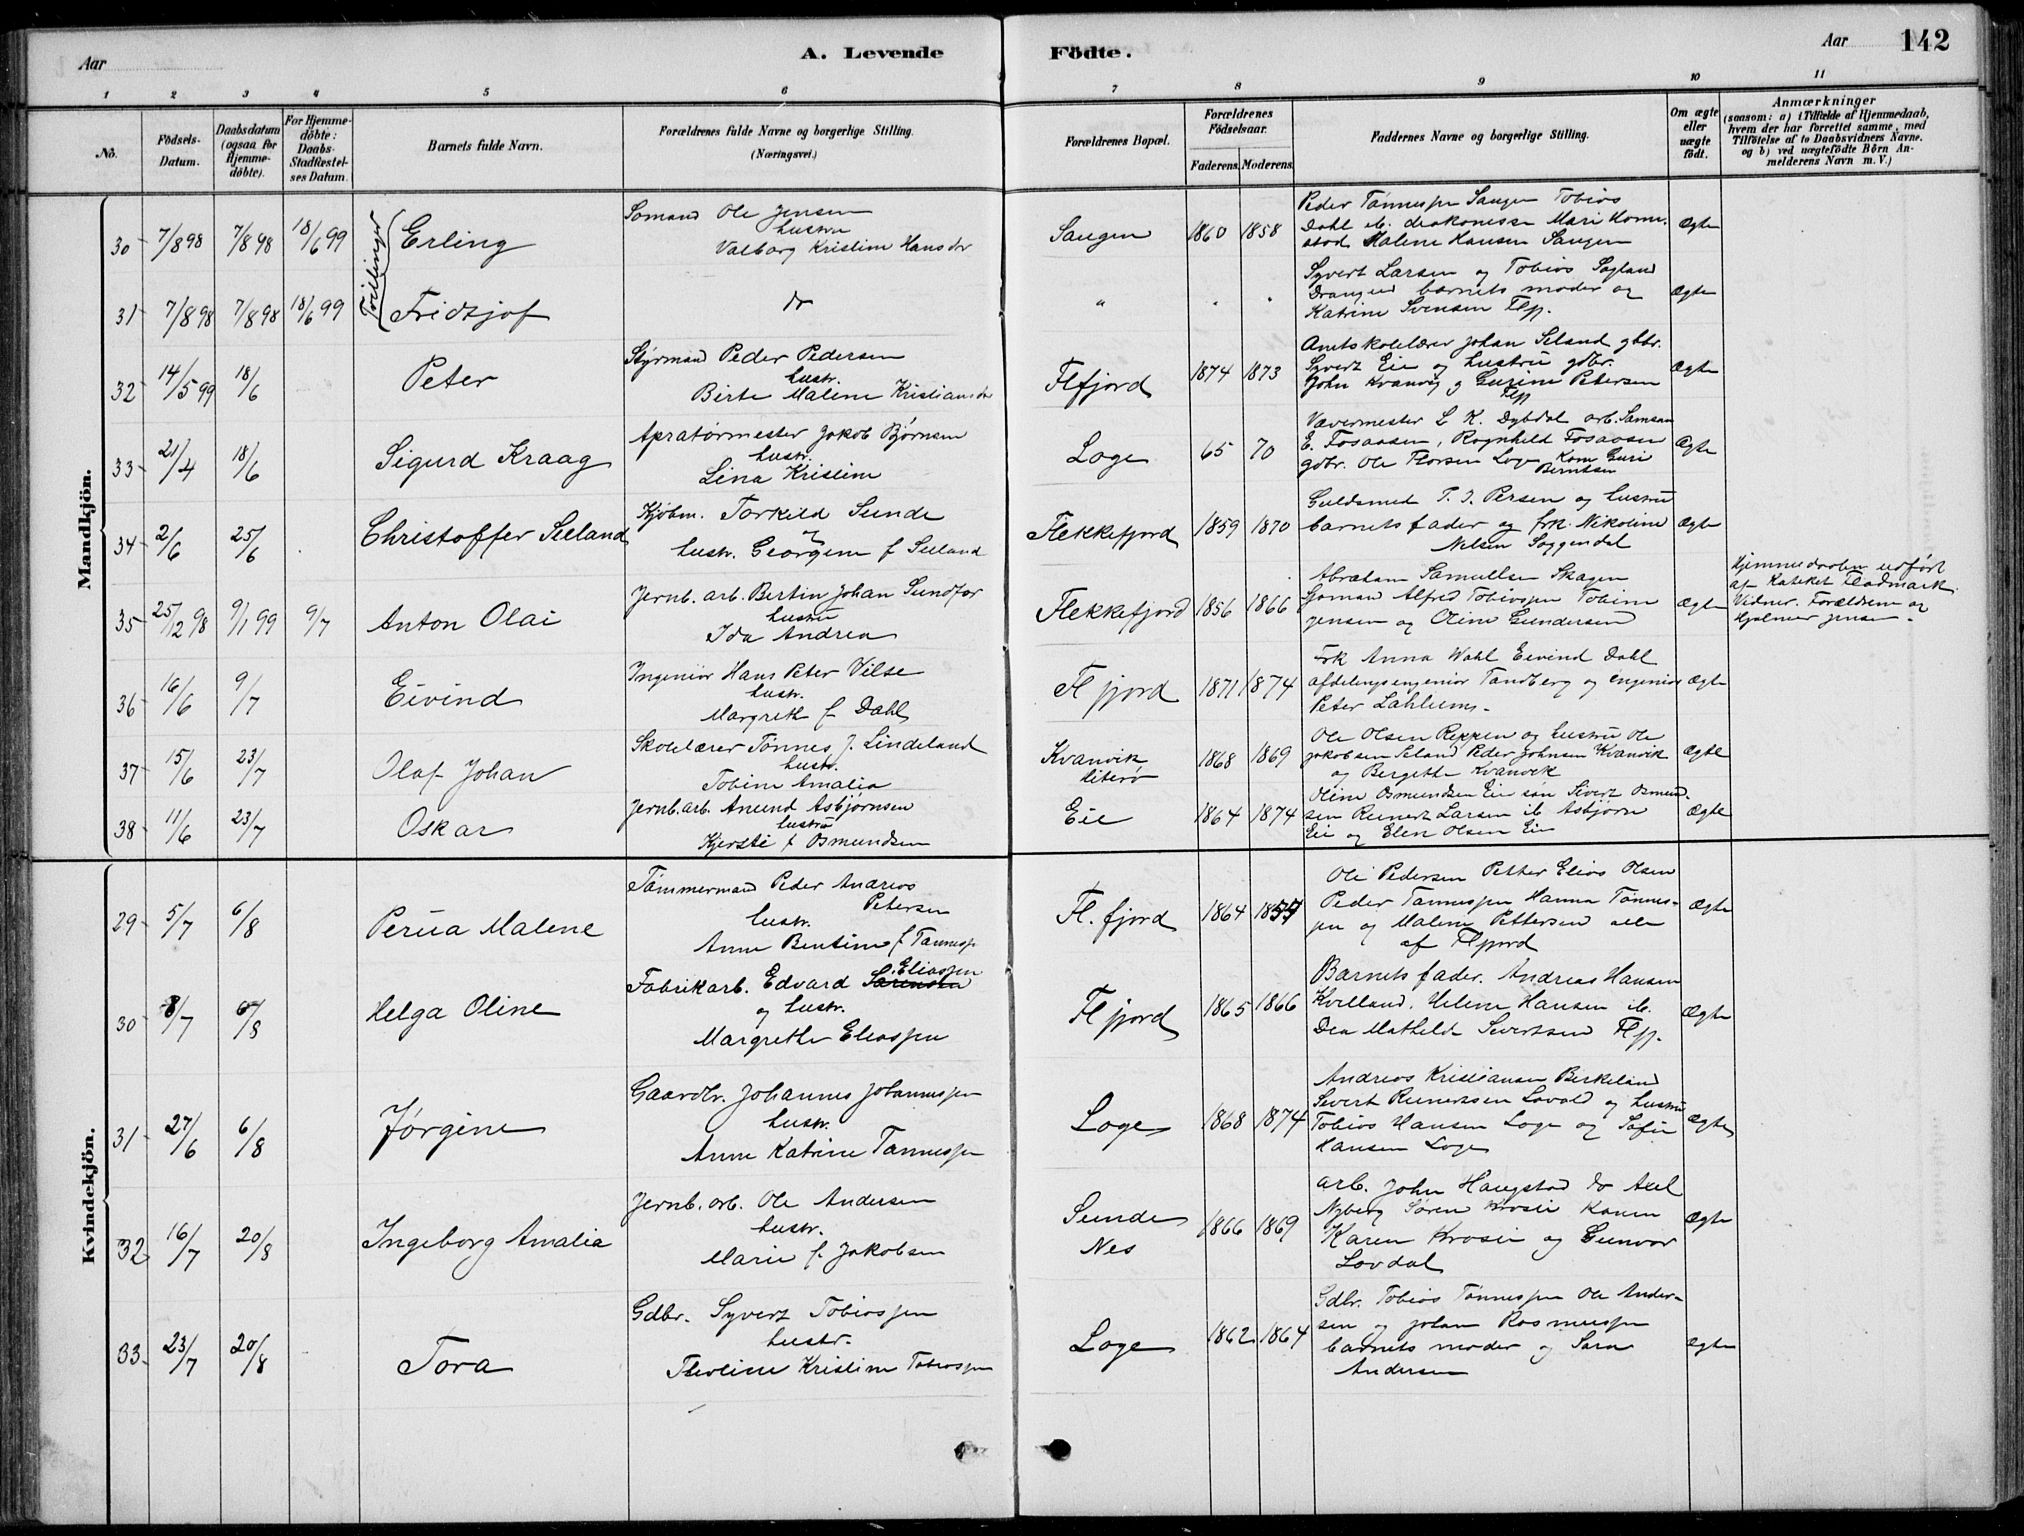 Aar A. Levende Födte. Aar 142
1 2 3 4 5 6 7 8 9 10 11
No. Födsels-Datum. Daabsdatum (ogsaa for Hjemmedöbte). For Hjemmedöbte: Daabs-Stadfæstelses Datum. Barnets fulde Navn. Forældrenes fulde Navne og borgerlige Stilling. (Næringsvei.) Forældrenes Bopæl. Forældrenes Födselsaar. Faderens. Moderens. Faddernes Navne og borgerlige Stilling. Om ægte eller uægte födt. Anmærkninger (saasom: a) i Tilfælde af Hjemmedaab, hvem der har forrettet samme, med Tilföielse af to Daabsvidners Navne. og b) ved uægtefödte Börn Anmelderens Navn m. V.)
Mandkjön.
Tvillinger
30 7/8 98 7/8 98 18/6 99 Erling
Sømand Ole Jensen
hustru
Valborg Kristine Hansdr
Saugen 1860 1858
Peder Tønnesen Saugen Tobias
Dahl ib. diakonesse Mari
Malene Hansen Saugen
Ægte
31 7/8 98 7/8 98 18/6 99 Fridtjof
do
" " "
Syvert Larsen og Tobias
barnets moder og
Katrine Svensen Flfj.
Ægte
32 14/5 99 18/6 Peter
Styrmand Peder Pedersen
hustr.
Birte Malene Kristiansdr
Flfjord 1874 1873
Amtskolelærer Johan Seland gbr.
Syvert Eie og hustru gdbr.
John Kvanvig g Gurine Petersen
Flfj
Ægte
33 21/4 18/6 Sigurd Kraag
Apratørmester Jakob Bjørnsen
hustr.
Lina Kristine
Loge 65 70
Vævermester L K. Dybdal arb. Samson
E. Fosaasen, Ragnhild Fosaasen
gdbr. Ole Loge Kone Guri
Berntsen
Ægte
34 2/6 25/6 Christoffer Seeland
Kjøbm. Torkild Sunde
hustr. Georgine f Seeland
Flekkefjord 1859 1870
Guldsmed T. I. Persen og hustru
barnets fader og frk. Nikoline
Nielsen Soggendal
Ægte
35 25/12 98 9/1 99 9/7 Anton Olai
Jernb. arb. Bertin Johan Sundfør
hustru
Ida Andrea
Flekkefjord 1856 1866
Abraham Samuelsen Skagen
Sjømand Alfred Tobiassen Tobine
Jensen og Oline Gundersen
Ægte
Hjemmedaaben udført
af Kateket Flodmark.
Vidner. Forældrene og
Hjalmar Jensen.
36 16/6 9/7 Eivind
Ingeniør Hans Peter Vilse
hustr.
Margreth f Dahl
Fl fjord 1871 1874
Frk Anna Wahl Eivind Dahl
afdelingsengeniør Tandberg og engeniør
Peter Lahlums.
Ægte
37 15/6 23/7 Olaf Johan
Skolelærer Tønnes J. Lindeland
hustr.
Tobine Amalia
Kvanvik
Hiterø
1868 1869
Ole Olsen Reppen og hustru Ole
Jakobsen Seland Peder Johnsen Kvanvik
og Bergitte Kvanvik
Ægte
38 11/6 23/7 Oskar
Jernb. arb. Amund Asbjørnsen
hustru
Kjersti f Osmundsen
Eie 1864 1874
Oline Osmundsen Eie søn Sivert Osmundsen
Reinert Larsen ib Asbjørn
Eie og Elen Olsen Eie
Ægte
Kvindekjön.
29 5/7 6/8 Perna Malene
Tømmermand Peder Andreas
Petersen
hustr.
Anne Bentine f Tønnesp
Fl. fjord 1864 1857
Ole Pedersen Petter Elias Olsen
Peder Tønnessen Hanna Tønnessen
og Malene Pettersen alle
af Flfjord
Ægte
30 8/7 6/8 Helga Oline
Fabrikarb. Edvard Sørensen Eliassen
og hustr.
Margrethe Eliassen
Fl fjord 1865 1866
Barnets fader. Andreas Hansen
Kvelland. Helene Hansen ib.
Dea Mathilde Sivertsen Flfj.
Ægte
31 27/6 6/8 Jørgine
Gaardbr. Johannes Johannessen
hustr.
Anne Katrine Tønnessen
Loge 1868 1874
Andreas Kristiansen Birkeland
Sivert Reinertsen Lavold og hustru
Tobias Hansen Loge og Sofie
Hansen Loge
Ægte
32 16/7 20/8 Ingeborg Amalia
Jernb. arb. Ole Andersen
hustr.
Marie f. Jakobsen
Sunde
Nes
1866 1869
arb. John Haugstad do Axel
Nyberg Søren Krosli Konen
Karen Krosli og Gunvor
Lovdal
Ægte
33 23/7 20/8 Tora
Gdbr. Syvert Tobiassen
hustr.
Theoline Kristine Tobiassen
Loge 1862 1864
Gdbr. Tobias Tønnessen Ole Andersen
og Johan Rasmussen
barnets moder og Sara
Andersen
Ægte